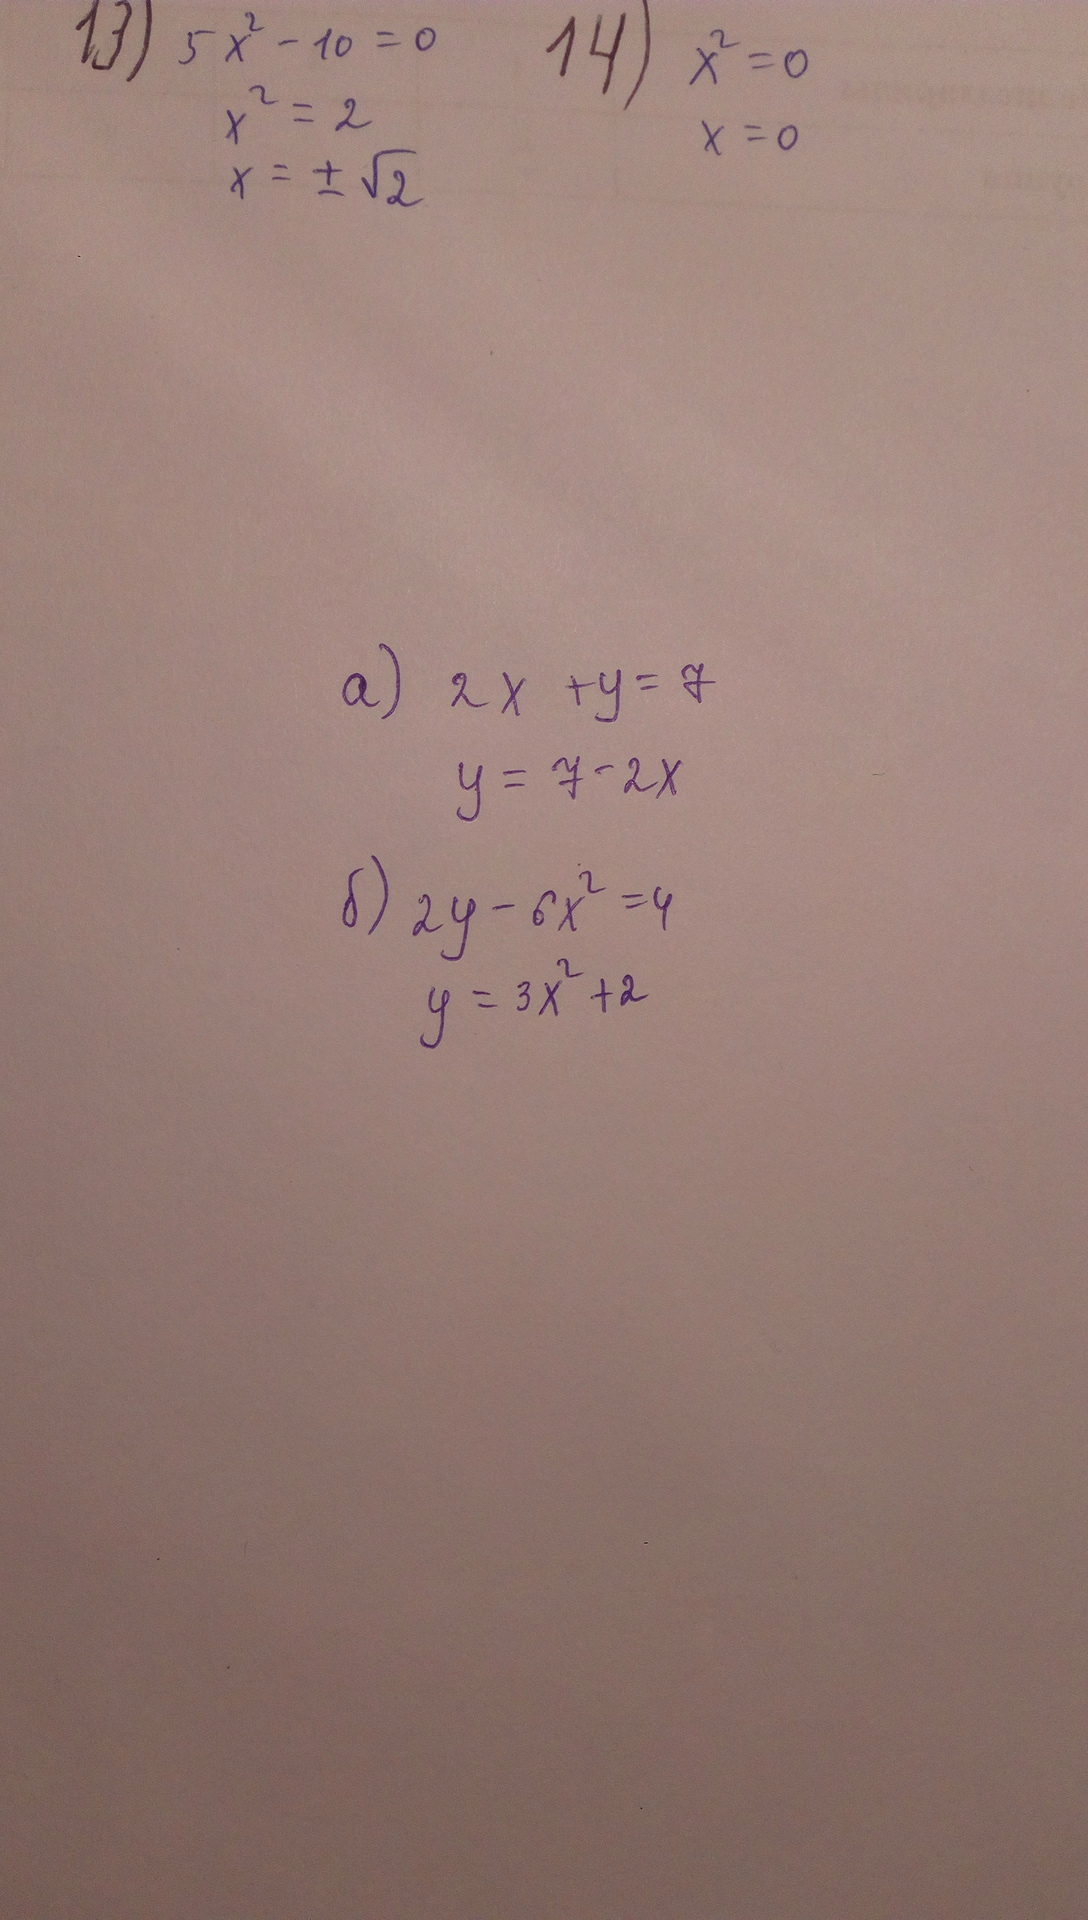 13) 5x² - 10 = 0
x² = 2
x = ± √2
14) x² = 0
x = 0
а) 2x + y = 7
y = 7 - 2x
б) 2y - 6x² = 4
y = 3x² + 2